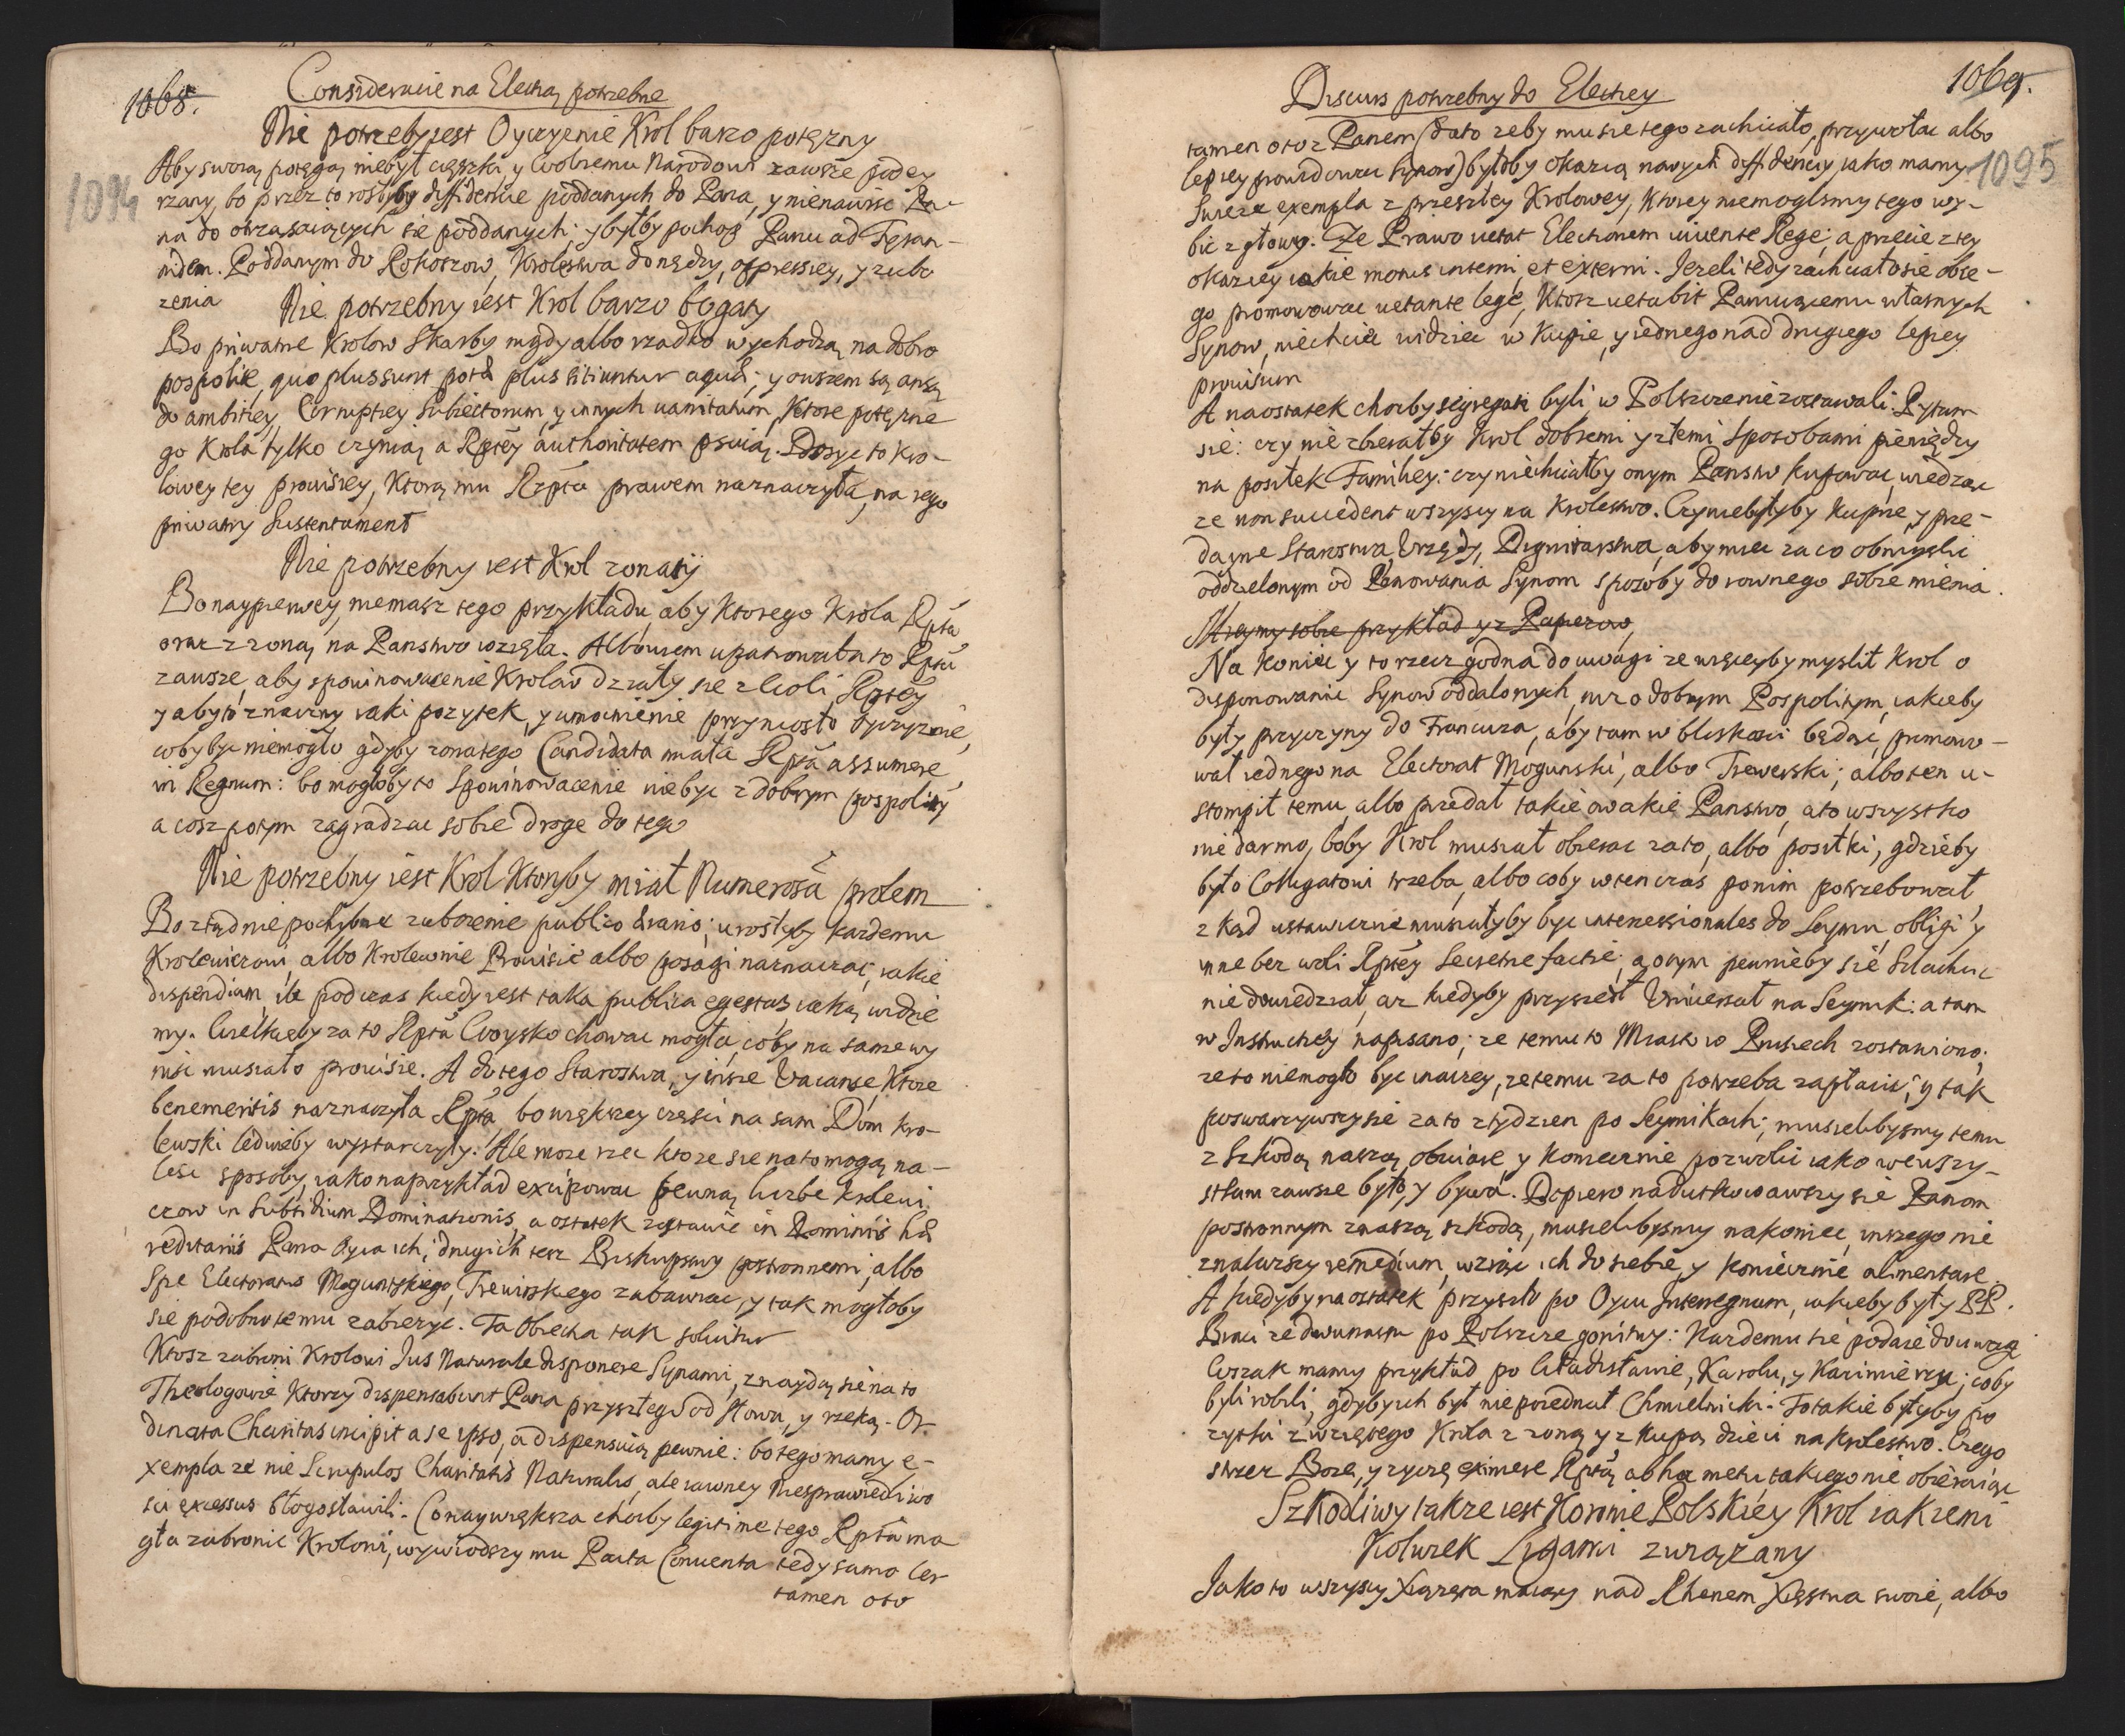 1068.
Consideracie na Elekcią potrzebne
1094
Nie potrzebny iest Oyczyznie Krol barzo potęzny
Aby swoią potęgą niebył cięszki y Wolnemu Narodowi zawsze podey
rzany, bo przez to rosłyby diffidencie poddanych do Pana, y nienawisc Pa-
na do obrażaiących się poddanych; y byłby pochop Panu ad Tyran-
nidem. Poddanym do Rokoszow, Krolestwa do nędzy, oppressiey, y zubo
zenia
Nie potrzebny iest Krol barzo bogaty
Bo priwatne Krolow Skarby nigdy albo rzadko wychodzą na dobro
pospolite, quo plus sunt potae plus sitiuntur aquae; y owszem są ansą
do ambitiey, Corruptiey Subiectorum, y innych vanitatum, Ktore potęzne
go Krola tylko czynią, a Rptey authoritatem psuią. Dosyc to Kro-
lowey tey prowisiey, Ktorą mu Rzpta prawem naznaczyła, na iego
priwatny Sustentament
Nie potrzebny iest Krol zonatÿ
Bo naypierwey, niemasz tego przykładu, aby Ktorego Krola Rpta
oraz z zoną na Panstwo wzięła. Albowiem upatrowała to Rpta
zawsze, aby spowinowacenie Krolow działy się z Woli Rptey
y aby to znaczny iaki pozytek, y umocnienie przyniosło Oyczyznie,
coby byc niemogło gdyby zonatego Candidata miała Rpta assumere
in Regnum: bo mogłoby to Spowinowacenie niebyc z dobrym pospolitÿ
a cosz potym zagradzac sobie drogę do tego
Nie potrzebny iest Krol Ktoryby miał Numerosa prolem
Bo ztąd niepochybne zubozenie publico Erario; urosłyby kazdemu
Krolewicowi, albo Krolewnie Prowisie albo posagi naznaczac, iakie
dispendium, ile podczas kiedy iest taka publica egestas iaką widzie
my. Wielkieby za to Rpta Woysko chowac mogła, coby na same wy
nisc musiało prowisie. A do tego Starostwa, y insze Vacanse, Ktore
benemeritis naznaczyła Rpta, bo większey częsci na sam Dom Kro-
lewski ledwieby wystarczyły. Ale moze rzec ktore sie na to mogą na-
lesc sposoby, iako naprzykład excipowac pewną liczbe krolewi
czow in Subsidium Dominationis, a ostatek zostawic in Dominiis hae
reditariis Pana Oyca ich; drugich tesz Biskupstwy postronnemi, albo
Spe Electoratus Moguntskiego, Trewirskiego zabawiac, y tak mogłoby
sie podobno temu zabiezyc. Ta Obiectia tak soluitur
Ktosz zabroni Krolowi Jus Naturale disponere Synami, znaydą się na to
Theologowie Ktorzy dispensabunt Pana przyszłego od słowa, y rzeką. Or
dinata Charitas incipit a se ipso, a dispensuią pewnie: bo tego mamy e-
xempla ze nie Scrupulos Charitatis Naturalis, ale iawney niesprawiedliwo
sci excessus błogosławili. Co naywiększa chocby legitime tego Rpta mo
gła zabronic Krolowi, wywiodszy mu Pacta Conuenta tedy samo Cer
tamen oto
Discurs potrzebny do Elekcyey
1069.
1095
tamen oto z Panem (dato zeby mu sie tego zachciało, przywołac albo
lepiey prowidowac Synow) byłoby okazią nowych diffidenciy iako mamy
swieze exempla z przeszłey Krolowey, Ktorey niemoglismy tego wy-
bic z głowy. Ze Prawo vetat Electionem viuente Rege; a przecie z tey
okaziey iakie motus interni, et externi. Jezeli tedy zachciało sie obce-
go promowowac vetante lege, Ktosz vetabit Panuiącemu własnych
Synow, niechciec widziec w kupie, y iednego nad drugiego lepiey
prouisum
A naostatek chocby segregati byli, w Polszcze niezostawali. Pytam
sie: czy nie zbierałby Krol dobremi y złemi sposobami pieniędzy
na posiłek Familiey: czy niechciałby onym Panstw kupowac, wiedząc
ze non succedent wszyscy na Krolestwo. Czy niebyłyby kupne, y prze-
dayne Starostwa, Urzędy, Dignitarstwa, aby miec za co obmyslic
oddzielonym od Panowania Synom sposoby do rownego sobie mienia.
Mieymy sobie przykład y z Papiezow,
Na koniec y to rzecz godna do uwagi ze więceyby myslił Krol o
disponowaniu Synow oddalonych, niz o dobrym Pospolitym, iakieby
były przyczyny do Francuza, aby tam w bliskosci będąc, promow-
wał iednego na Electorat Mogunski, albo Trewerski; albo ten u-
stompił temu, albo przedał takie owakie Panstwo, a to wszystko
nie darmo, boby Krol musiał obiecac za to, albo posiłki, gdzieby
było Colligatowi trzeba, albo coby wtenczas po nim potrzebował,
zkąd ustawiczne musiałyby byc intercessionales do Seymu, obligi y
inne bez woli Rptey secretne factie, a o tym pewnieby się Szlachcic
niedowiedział, az kiedyby przyszedł Uniwersał na Seymik: a tam
w Instructiey napisano; ze temu to Miasto w Prusiech zostawiono;
ze to niemogło byc inaczey, ze temu za to potrzeba zapłacic; y tak
poswarzywszy sie za to z tydzien po Seymikach; musielibysmy temu
z Szkodą naszą obviare, y koniecznie pozwolic iako we wszy-
stkim zawsze było, y bywa. Dopiero nadutkowawszy sie Panom
postronnym z naszą szkodą, musielibysmy nakoniec, inszego nie
znalazszy remedium, wziąc ich do siebie, y koniecznie alimentare.
A kiedyby na ostatek przyszło po Oycu Interregnum, iakieby były PP.
Braci ze dwunastu po Polszcze gonitwy: Kazdemu sie podaie do uwagi
Wszak mamy przykład po Władisławie, Karolu, y Kazimierzu; coby
byli robili, gdyby ich był niepoiednał Chmielnicki. To takie byłyby po
zytki z wziętego Krola z zoną y z kupą dzieci na Krolestwo. Czego
strzez Boze, y zyczę eximere Rptą ab hoc metu takiego nie obieraiąc
Szkodliwy takze iest Koronie Polskiey Krol iakiemi
Kolwiek Ligami związany
Jako to wszyscy Xiązęta maiący nad Rhenem Xięstwa swoie, albo